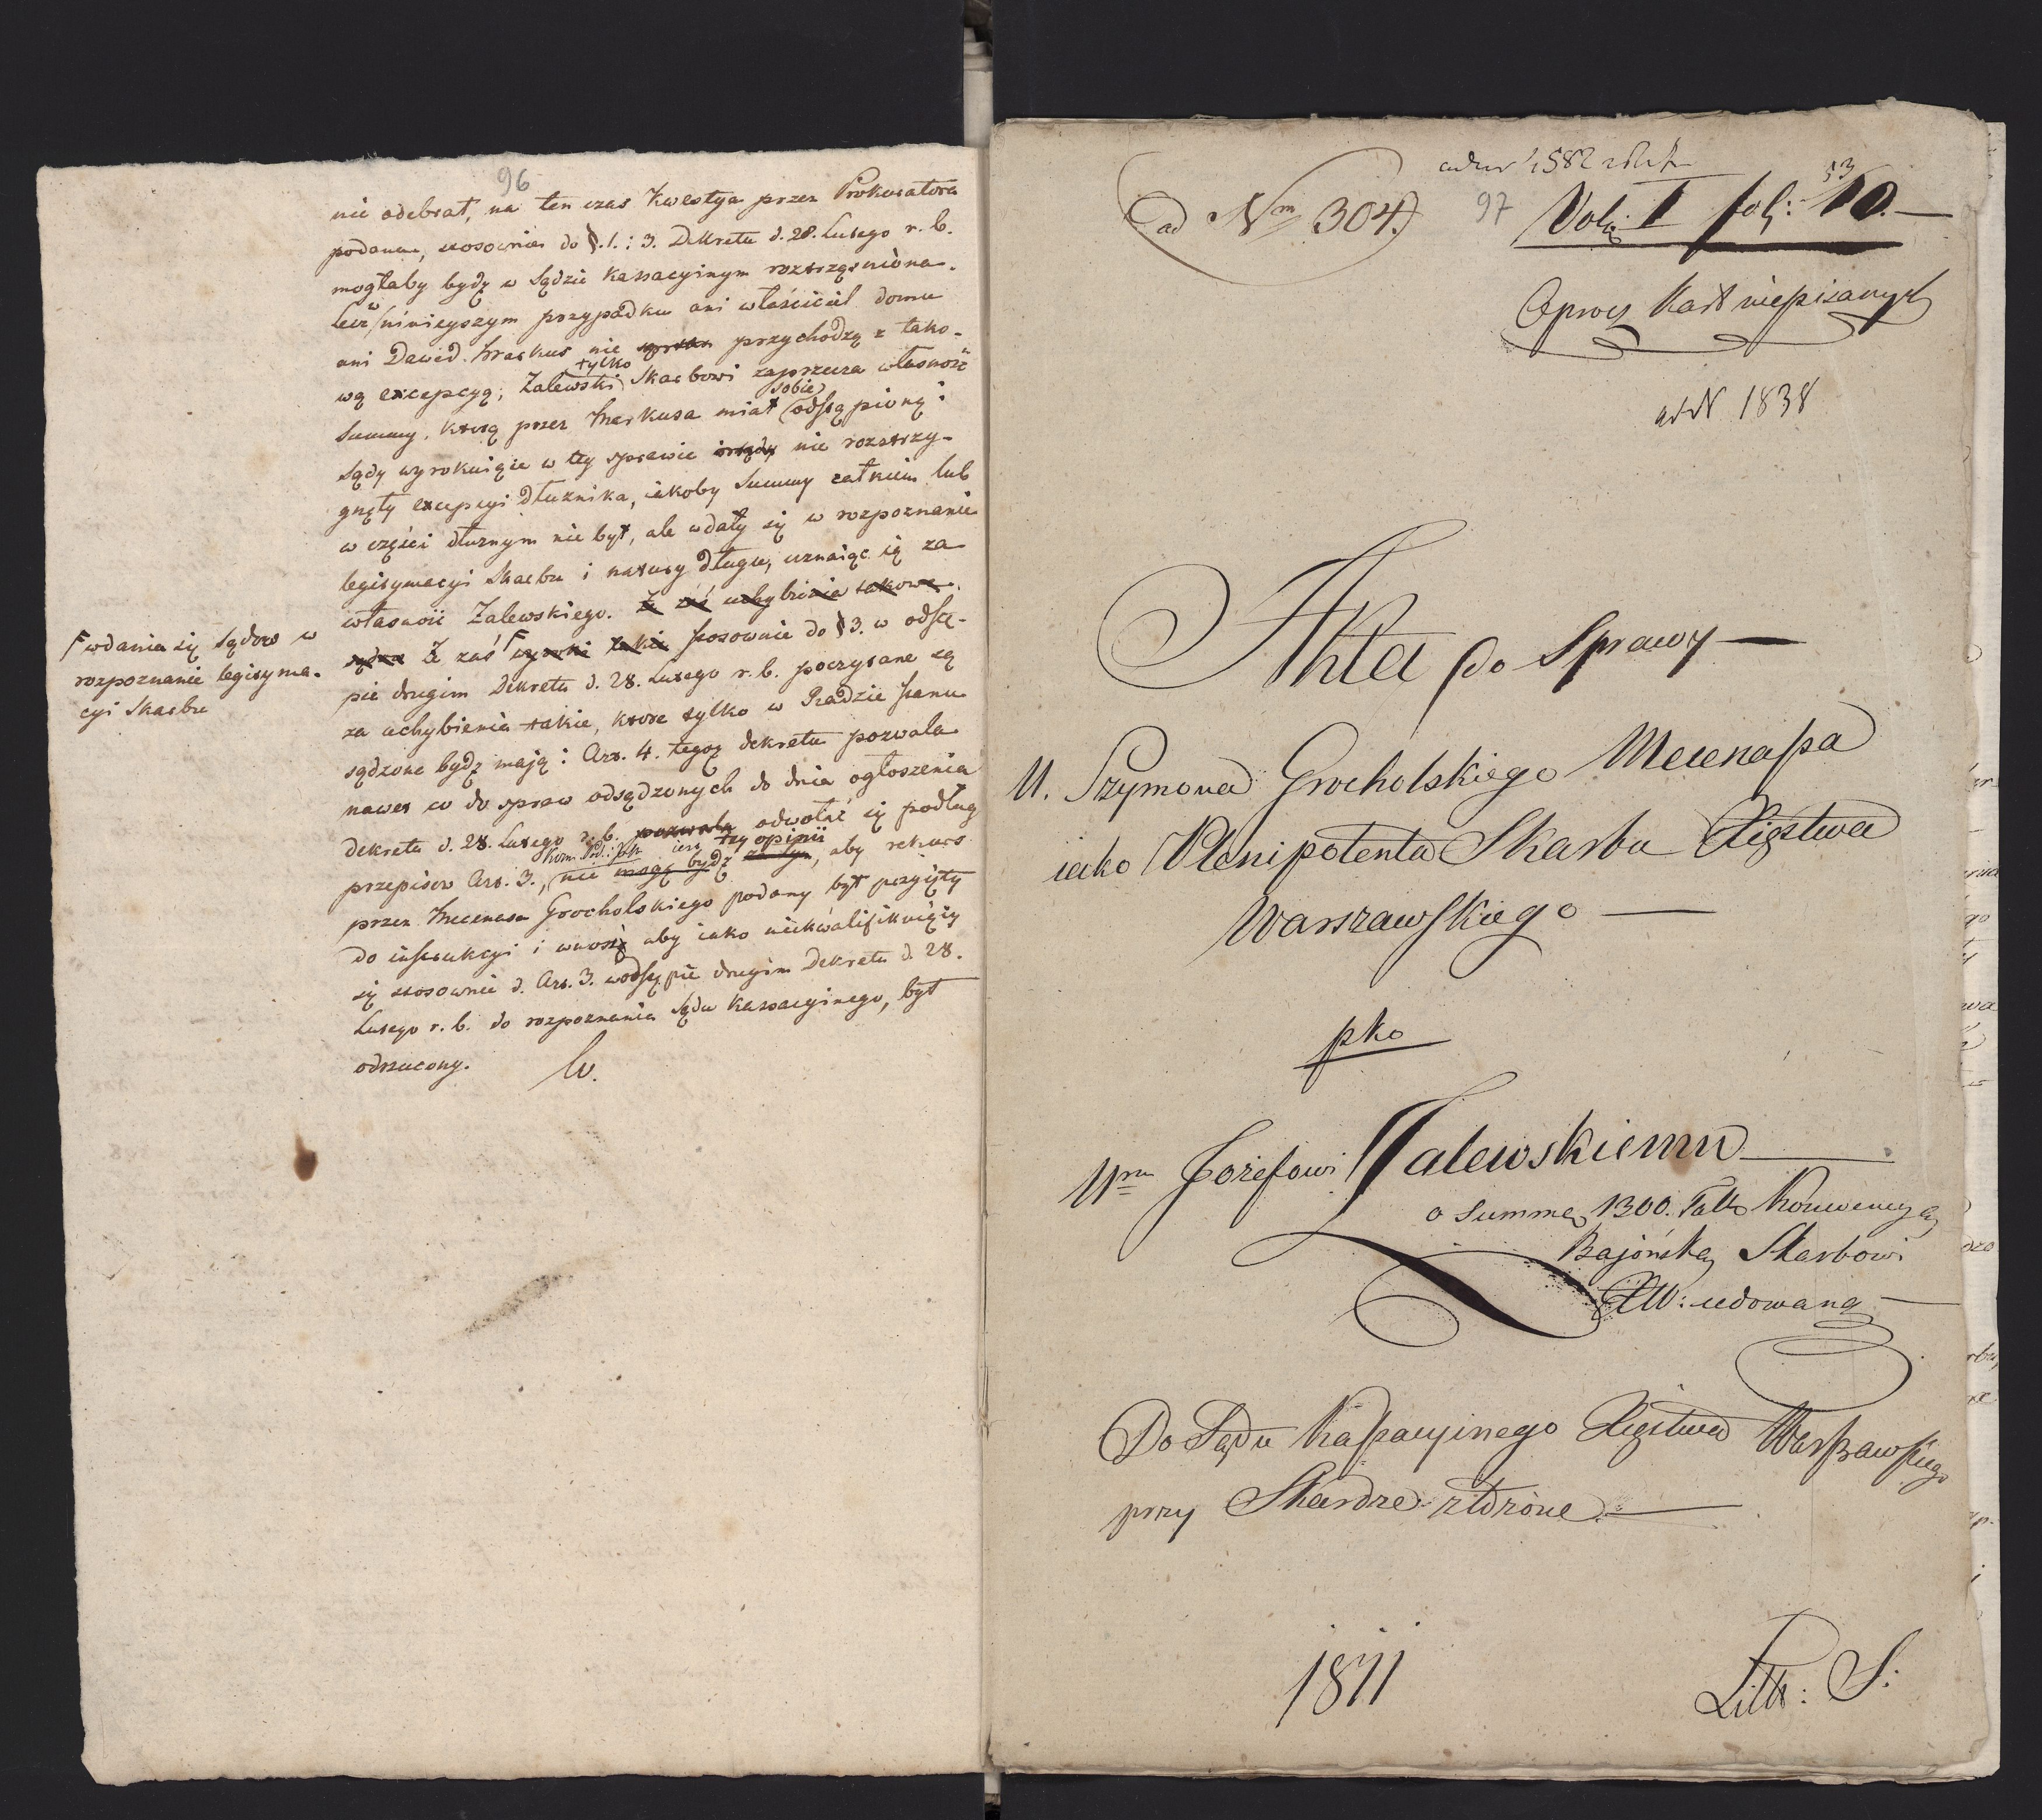 96
nie odebrał, na ten czas Kwestya przez Prokuratora
podana, stosownie do §.1. i 3. Dekretu d. 28. Lutego r. b.
mogłaby bydź w Sądzie Kassacyinym roztrząśniona.
lecz w ninieyszym przypadku ani właściciel domu
ani Dawid Markus nie przychodzą z tako-
wą excepcyą; Zalewski tylko Skarbowi zaprzecza własność
Summy, którą przez Markusa miał sobie odstąpioną i
sądy wyrokuiące w tey sprawie nie rozstrzy-
gnęły excepcyi dłużnika, iakoby Summy całkiem lub
w części dłużnym nie był, ale wdały się w rozpoznanie
legitymacyi Skarbu i natury długu, uznaiąc ią za
własność Zalewskiego. Że zaś uchybienia takowe
Że zaś F wyroki takie stosownie do §3. w odstę-
F wdania się Sądów w
rozpoznanie legityma-
cyi Skarbu
pie drugim Dekretu d. 28. Lutego r. b. poczytane są
za uchybienia takie, które tylko w Radzie Stanu
sądzone bydź mają i Art. 4. tegoż dekretu pozwala
nawet co do spraw odsądzonych do dnia ogłoszenia
dekretu d. 28. Lutego r. b. pozwala odwołać się podług
przepisów Art. 3., nie mogę bydź tey opinii, aby rekurs
przez Mecenasa Grocholskiego podany był przyięty
do instrukcyi i wnoszę aby iako niekwalifikuiący
się stosownie d. Art. 3. w odstępie drugim Dekretu d. 28.
Lutego r. b. do rozpoznania Sądu Kassacyinego, był
odrzucony.
ad Nm 304.
97
Vol: I fol: 10.
53
Oprocz Kart niepisanych
ad N 1838
Akta do Sprawy
U. Szymona Grocholskiego Mecenassa
iako Plenipotenta Skarbu Xięstwa
Warszawskiego
pko
Urmu Jozefowi Zalewskiemu
o Summę 1300. Tall. Konwencyą
Bajońską Skarbowi
XW: cedowaną
Do Sądu Kassacyinego Xięstwa Warszawskiego
przy Skardze złożone.
1811
Litt: S: